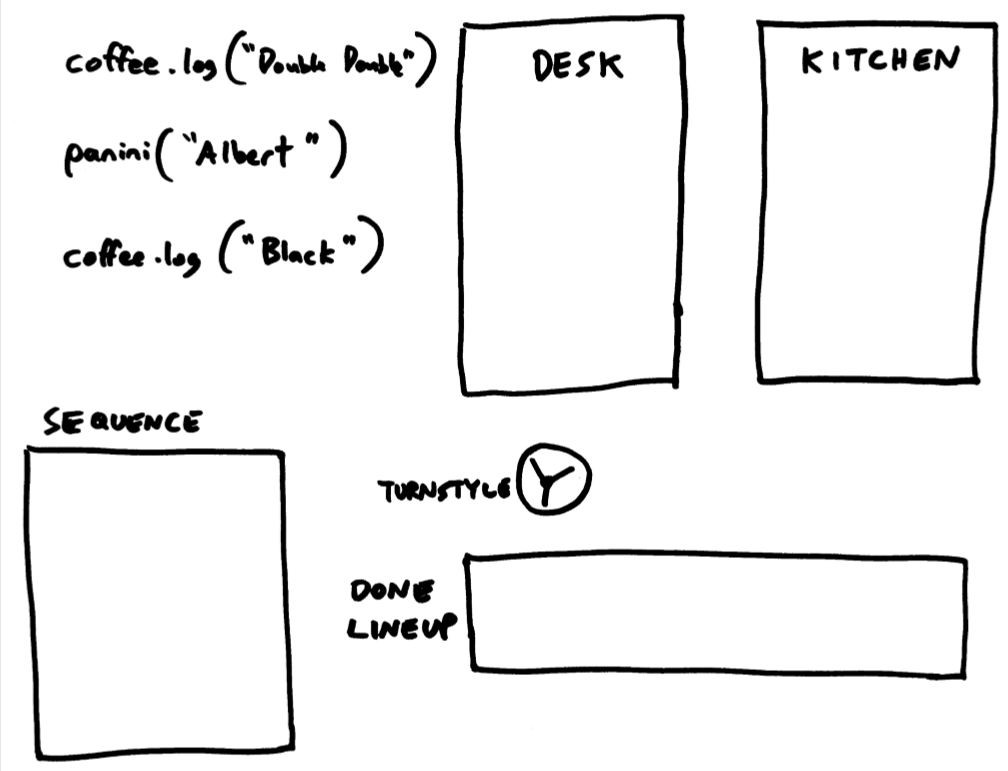 coffee.log("Double Double")
panini("Albert")
coffee.log("Black")
DESK
KITCHEN
SEQUENCE
TURNSTYLE
DONE
LINEUP